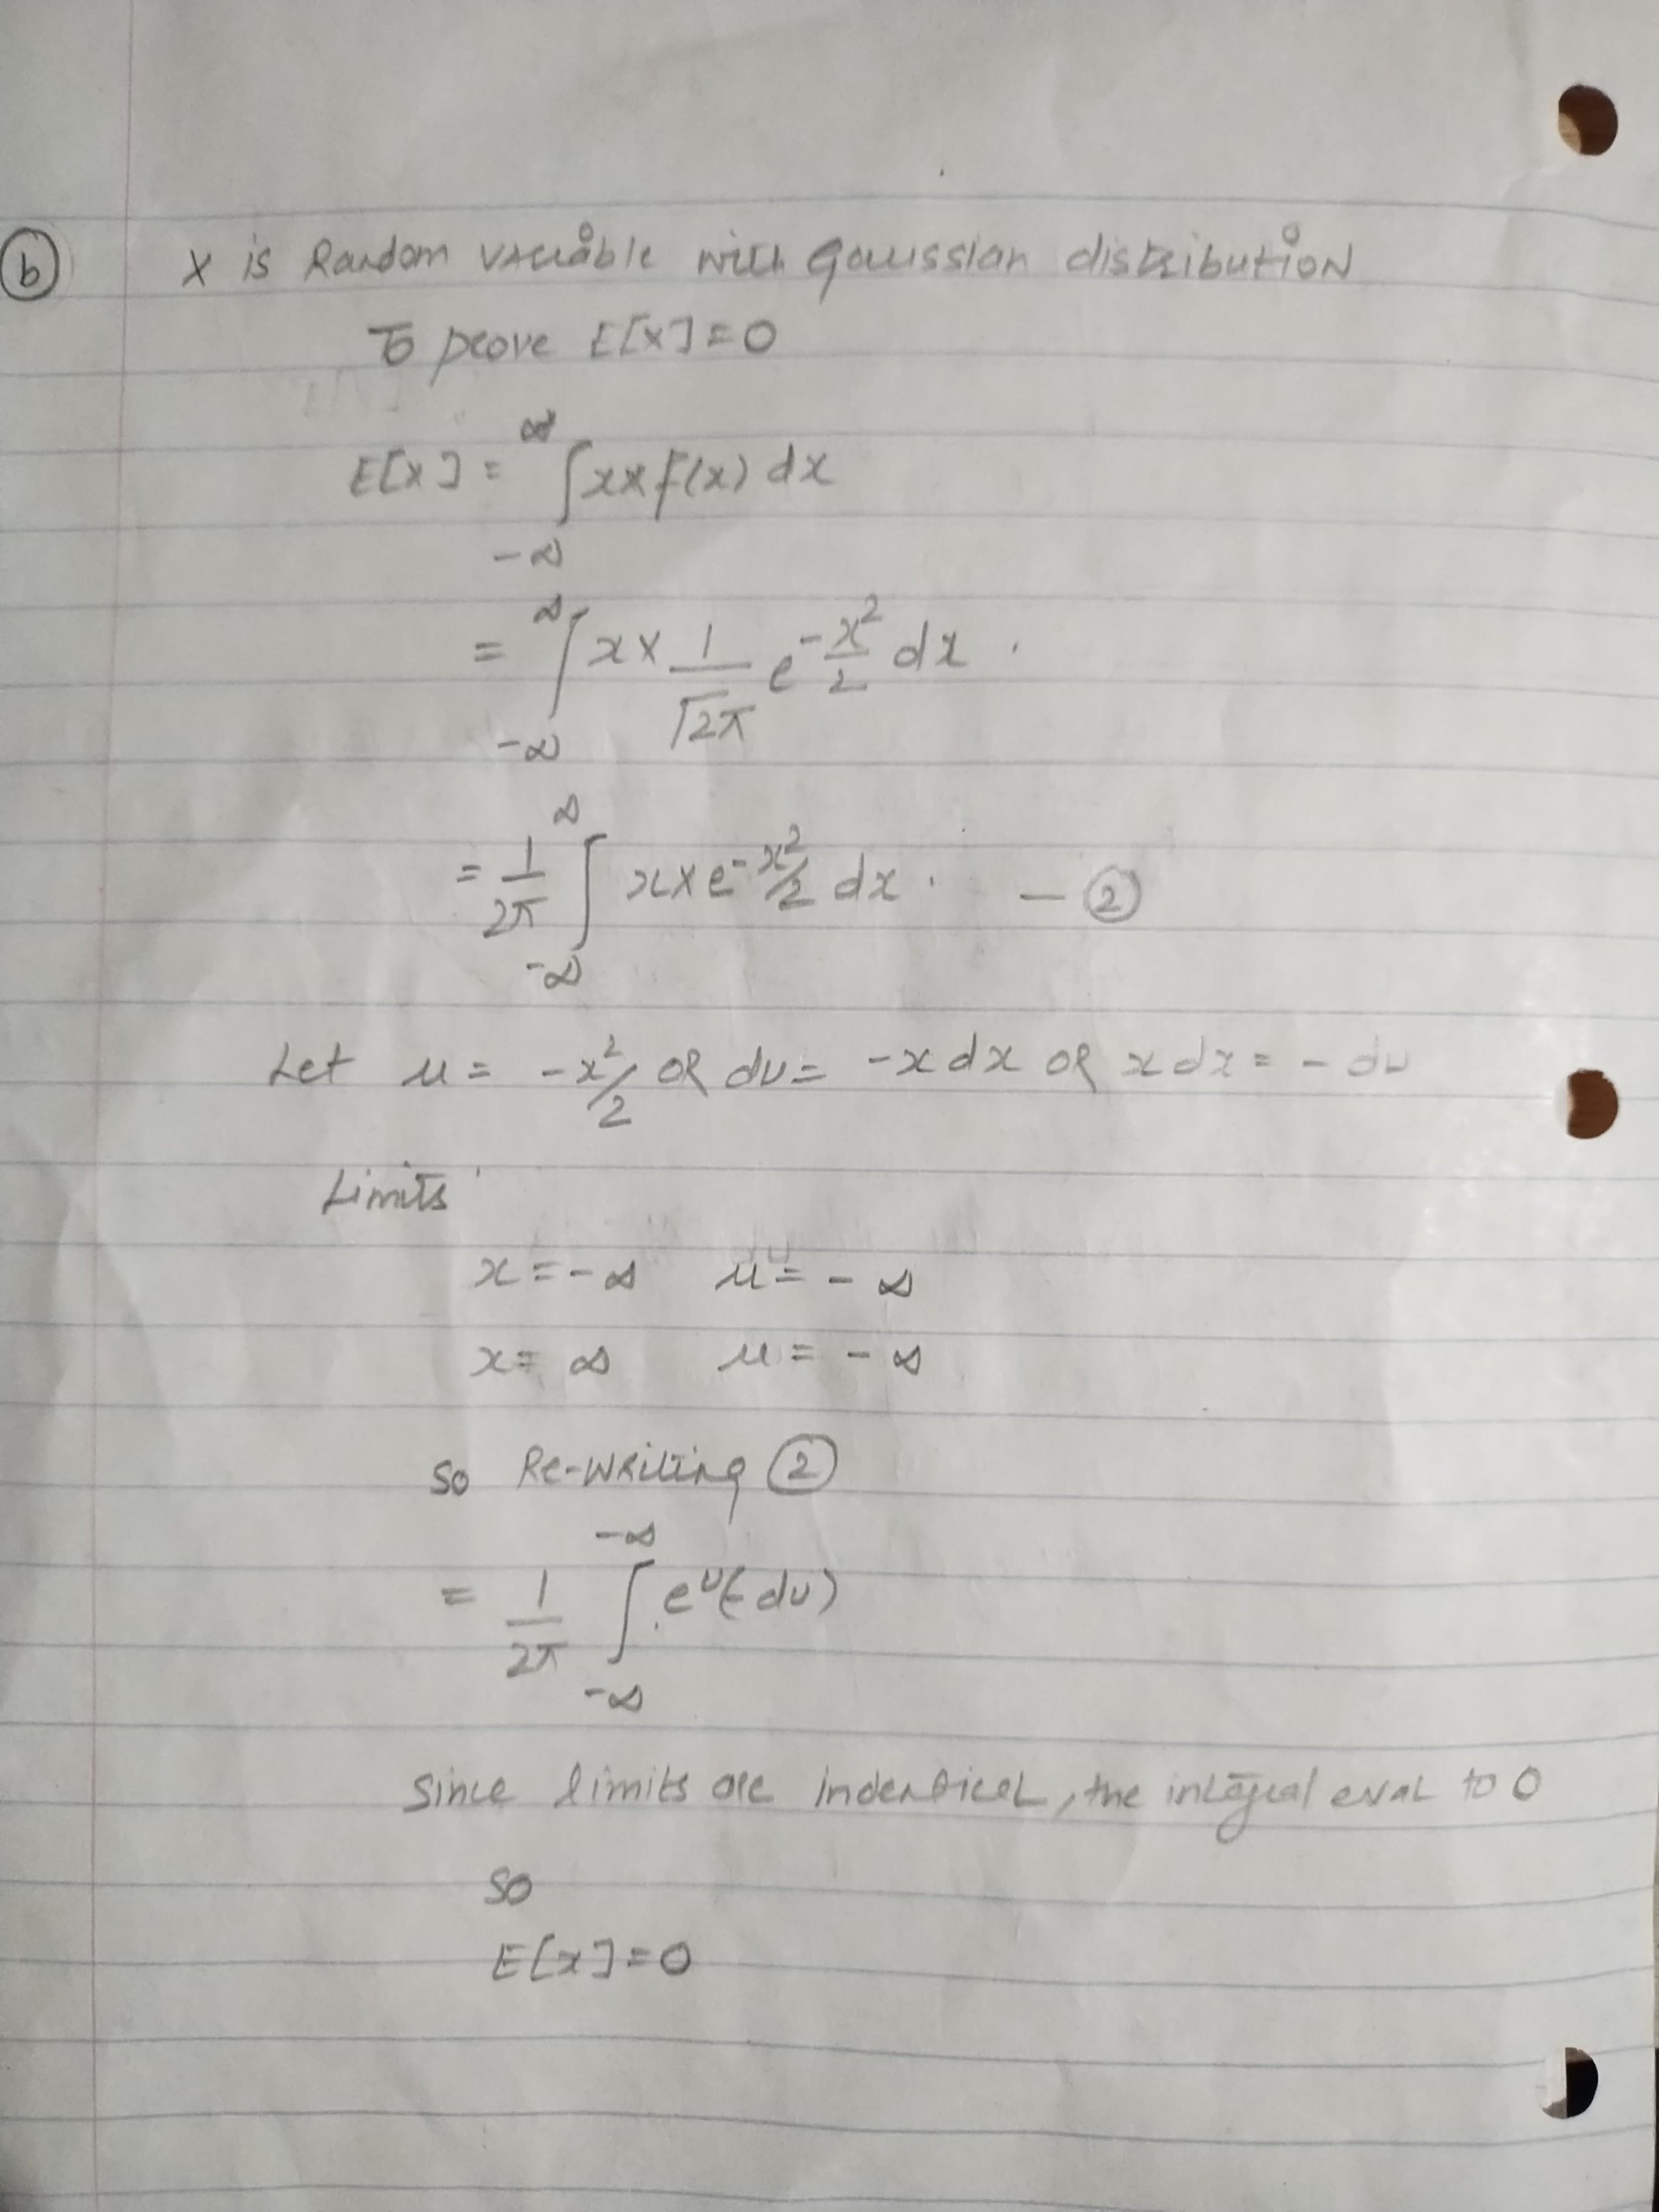 (b) X is Random variable with Gaussian distribution
To prove E[X] = 0
E[X] = ∫_{-∞}^{∞} x × f(x) dx
= ∫_{-∞}^{∞} x × 1/√2π e^{-x²/2} dx .
= 1/2π ∫_{-∞}^{∞} x × e^{-x²/2} dx . — (2)
Let u = -x²/2 OR du = -x dx OR x dx = - du
Limits
x = -∞ u = - ∞
x = ∞ u = - ∞
so Re-writing (2)
= 1/2π ∫_{-∞}^{-∞} e^u (-du)
Since limits are indentical, the integral eval to 0
so
E[x] = 0